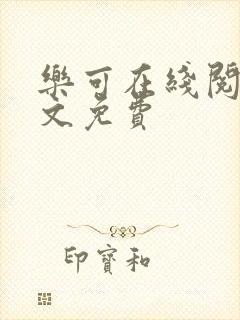 樂可在綫閱
文免費
印寶和